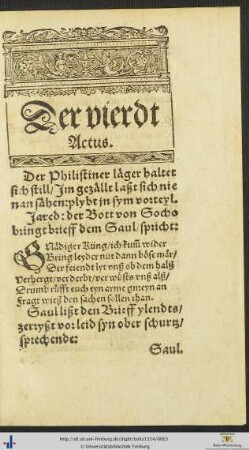 Der vierdt
Actus.
Der Philistiner läger haltet
sich still/ Im gezällt laßt sich nie
man sähen: plybt in sym vorteyl.
Jared: der Bott von Socho
bringt brieff dem Saul/ spricht:
GNädiger Küng/ ich kumm wider
Bring leyder nüt dann böse mär/
Der feiendt lyt vnß ob dem halß
Verhergt/ verderbt/ verwüst vnß alß/
Drumb rüfft euch eyn arme gmeyn an
Fragt wieß den sachen söllen than.
Saul lißt den Brieff ylendts/
zerryßt vor leid syn ober schurtz/
sprechende:
Saul.
http://dl.ub.uni-freiburg.de/diglit/boltz1554/0083
© Universitätsbibliothek Freiburg